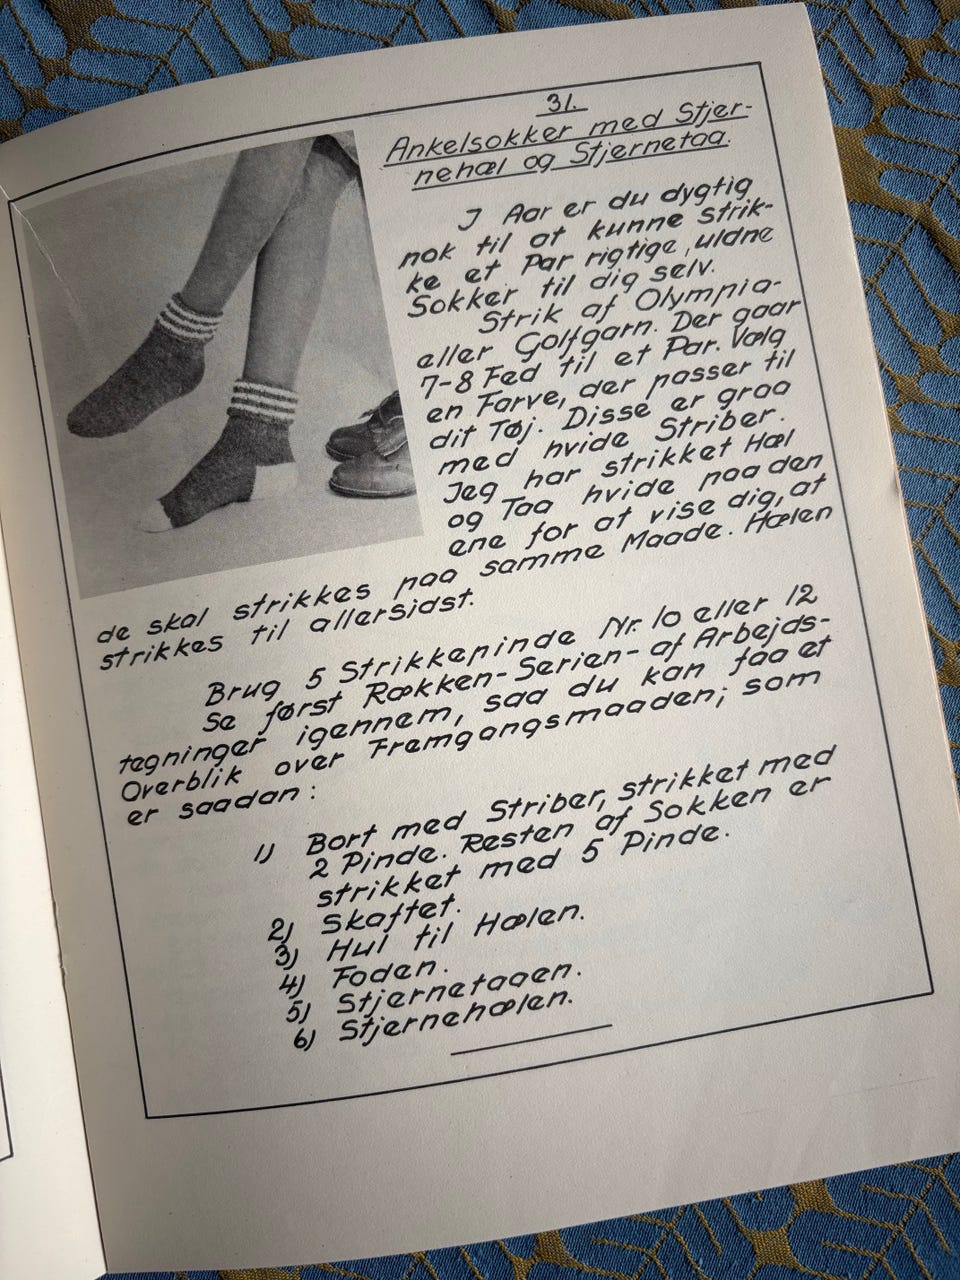 31.
Ankelsokker med Stjer-
nehæl og Stjernetaa.
I Aar er du dygtig
nok til at kunne strik-
ke et Par rigtige, uldne
Sokker til dig selv.
Strik af Olympia-
eller Golfgarn. Der gaar
7-8 Fed til et Par. Vælg
en Farve, der passer til
dit Tøj. Disse er graa
med hvide Striber.
Jeg har strikket Hæl
og Taa hvide paa den
ene for at vise dig, at
de skal strikkes paa samme Maade. Hælen
strikkes til allersidst.
Brug 5 Strikkepinde Nr. 10 eller 12
Se først Rækken-Serien-af Arbejds-
tegninger igennem, saa du kan faa et
Overblik over Fremgangsmaaden; som
er saadan:
1) Bort med Striber, strikket med
2 Pinde. Resten af Sokken er
strikket med 5 Pinde.
2) Skaftet.
3) Hul til Hælen.
4) Foden.
5) Stjernetaaen.
6) Stjernehælen.